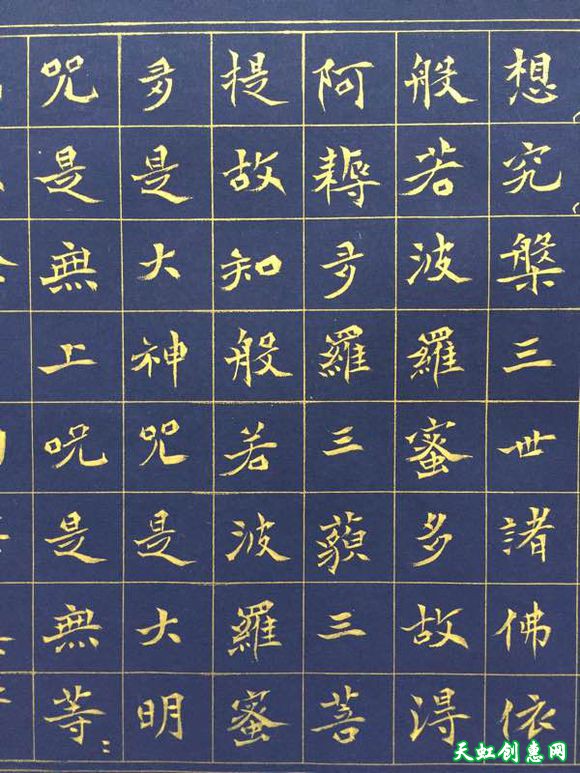 想究槃三世諸佛依
般若波羅蜜多故得
阿耨多羅三藐三菩
提故知般若波羅蜜
多是大神咒是大明
咒是無上呪是無等ː
天虹创惠网